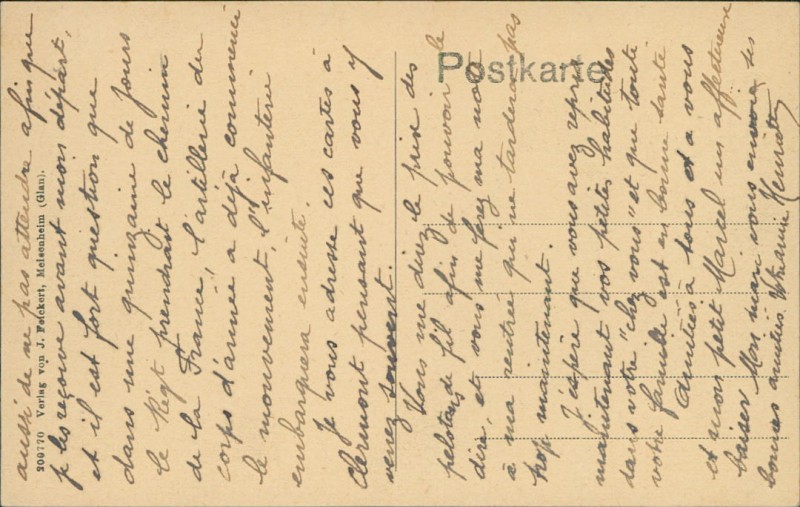 aussi de ne pas attendre afin que
je les reçoive avant mon départ,
et il est fort question que
dans une quinzaine de jours
le Régt prendrait le chemin
de la France, l'artillerie du
corps d'armée a déjà commencé
le mouvement, l'infanterie
embarquera ensuite.
Je vous adresse ces cartes à
Clermont pensant que vous y
venez souvent.
Vous me direz le prix des
pelotons de fil afin de pouvoir le
dire, et vous me ferez ma note
à ma rentrée qui ne tardera pas
trop maintenant.
J'espère que vous avez repris
maintenant vos petites habitudes
dans votre "chez vous" et que toute
votre famille est en bonne santé
Amitiés à tous et à vous
et mon petit Marcel un affectueux
baiser Mon mari vous envoie ses
bonnes amitiés. Votre amie Henriette
Postkarte
209770 Verlag von J. Feickert, Meisenheim (Glan).